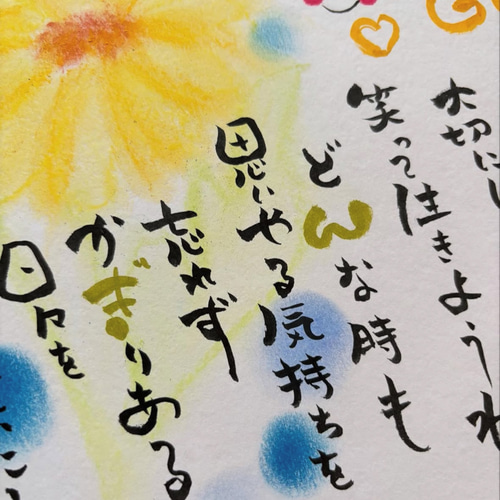 大切にし
笑って生きようね
どんな時も
思いやる気持ちを
忘れず
かぎりある
日々を